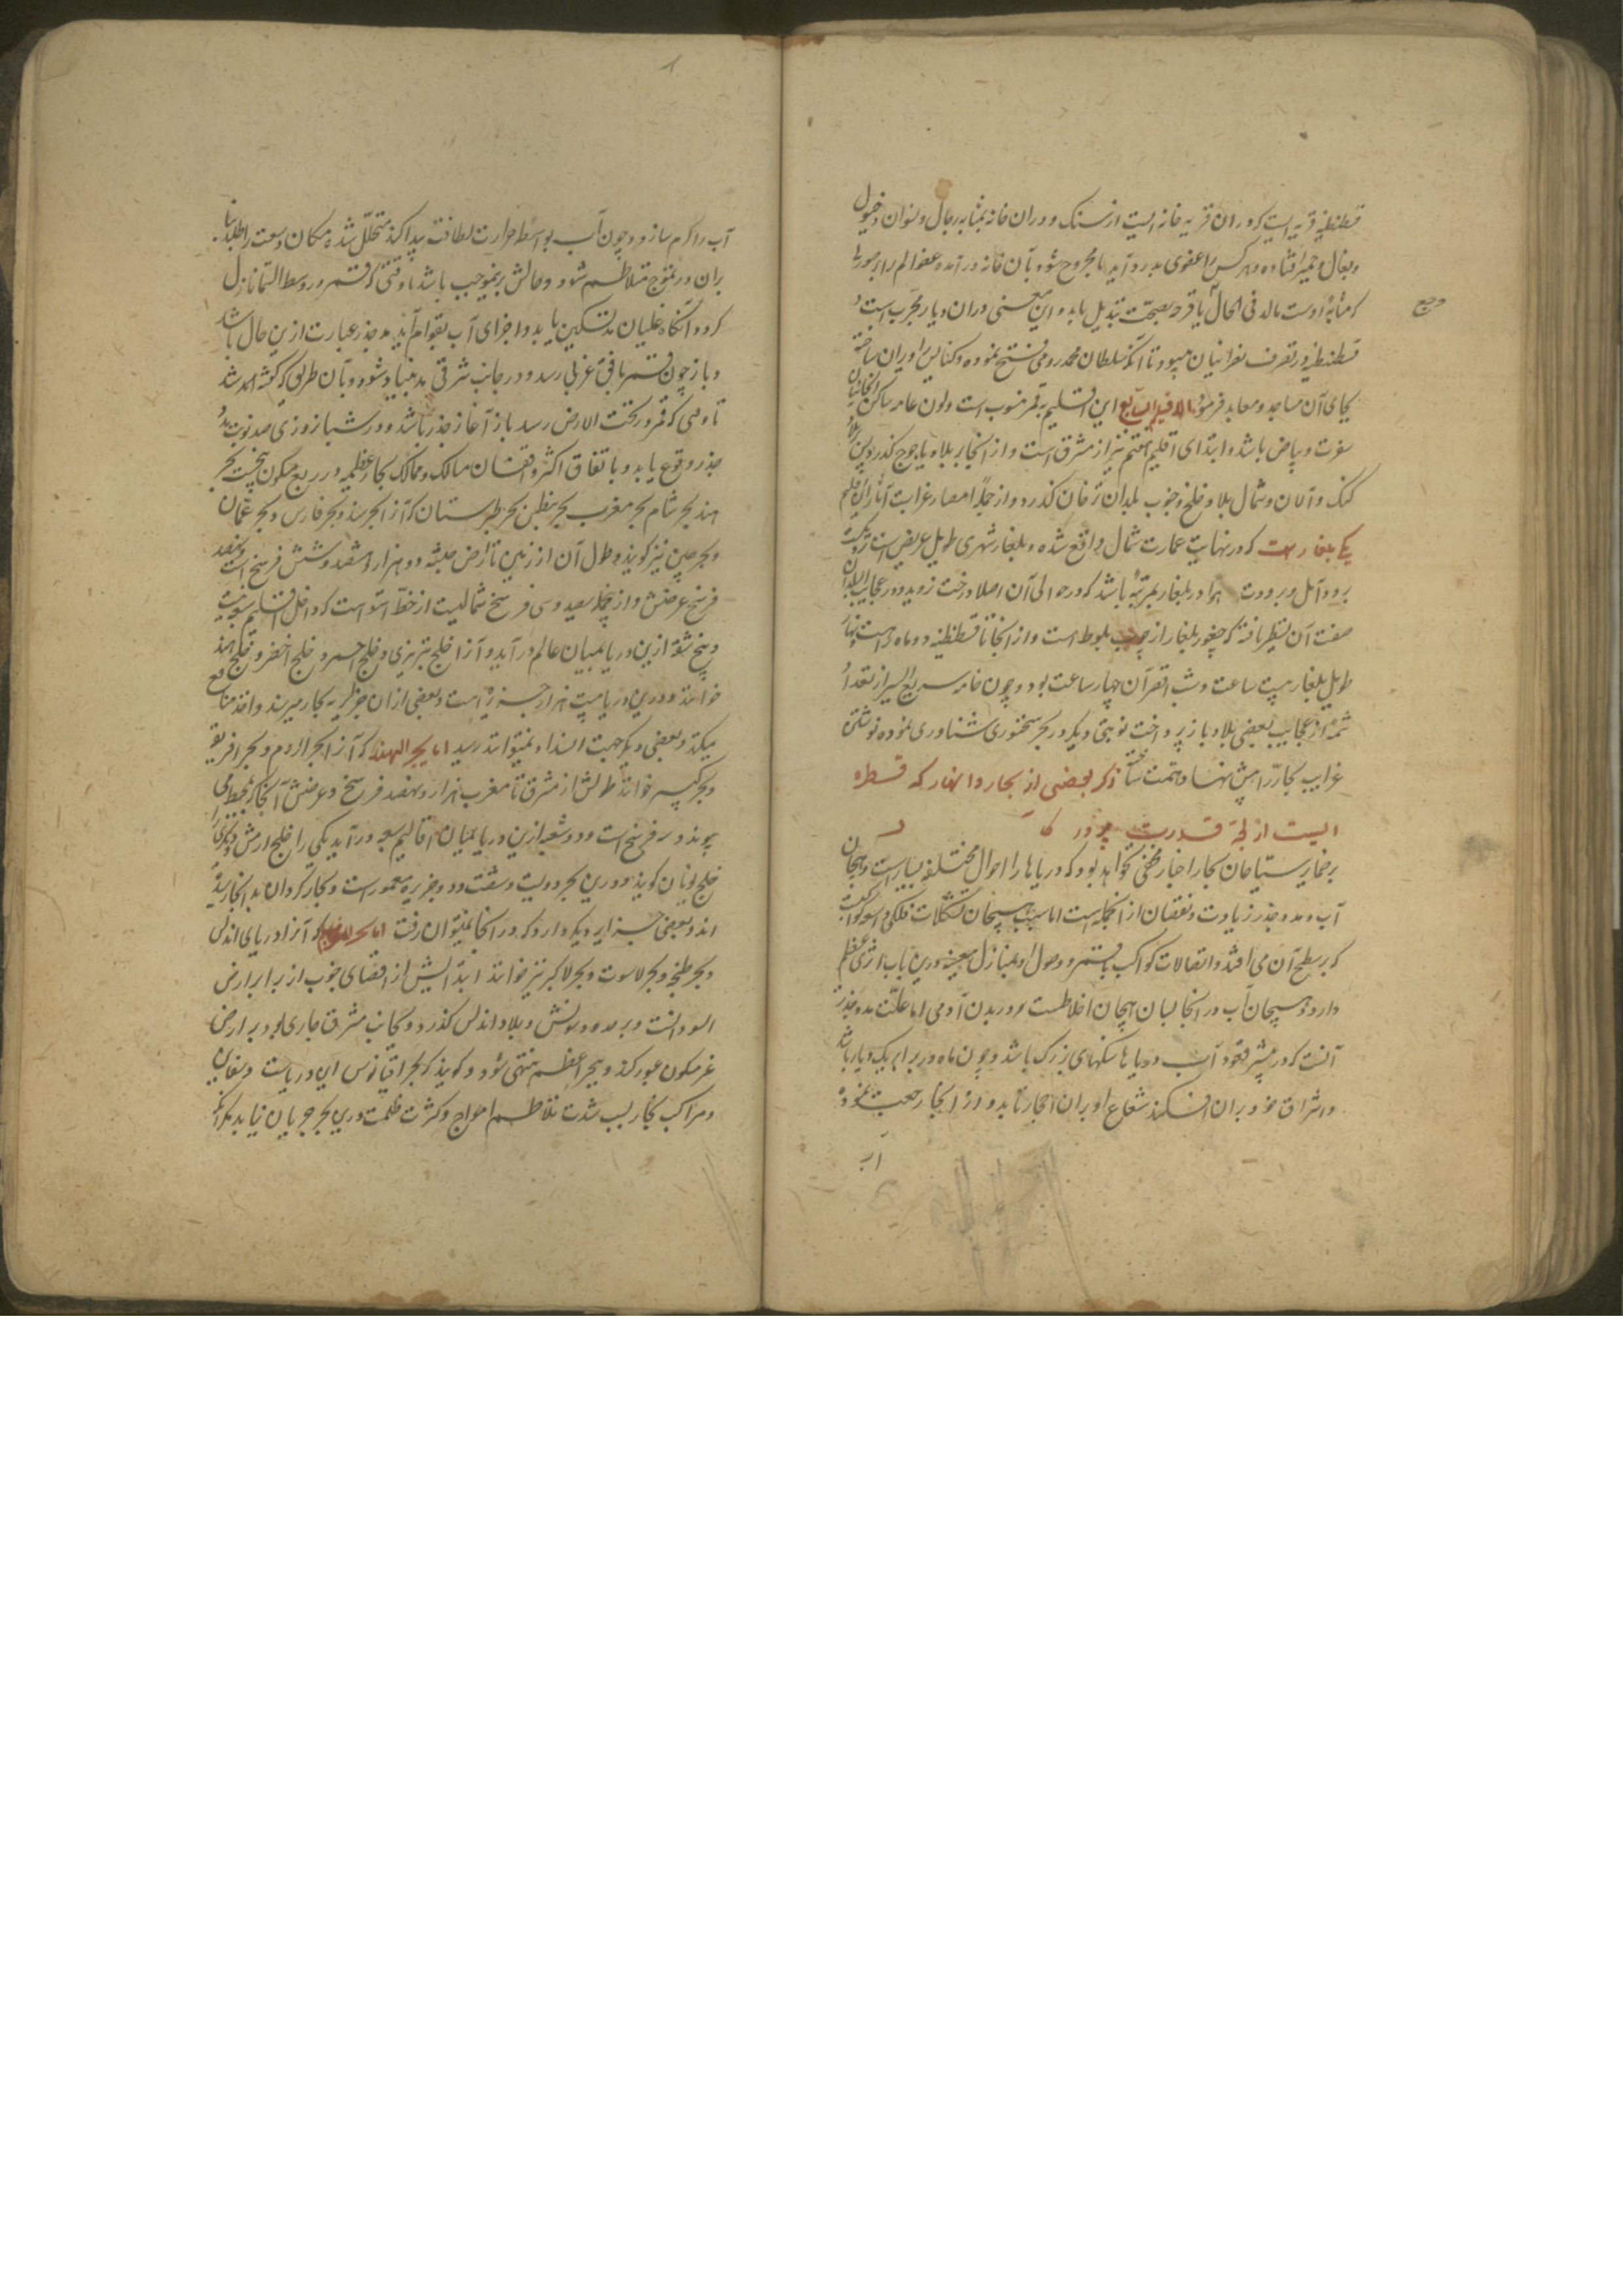 قسطنطنیه قریه ایست که در ان قریه خانه ایست از سنک و در ان خانه بمثابه رجال و نسوان و خیول
و بغال و حمیر افتاده و هر کس را عضوی بدرد آید یا مجروح شود بآن خانه در آمده عضو الم را بر صورتی
وجع
که مثابه اوست مالد فی الحال یا قرحه بصحت تبدیل یابد و این معنی در ان دیار مجرب است و
قسطنطنیه در تصرف نصرانیان میبود تا آنکه سلطان محمد رومی فتح نموده و کنایس را ویران ساخته
بجای آن مساجد و معابد فرمود الاقلیم السابع این اقلیم بقمر منسوب است و لون عامه ساکن انجا میان
سفرت و بیاض باشد و ابتدای اقلیم هفتم نیز از مشرق است و از انجا بر بلاد یاجوج گذرد پس
کنک و آلان و شمال بلاد خلخ و جنوب بلدان ترخان گذرد و از جمله امصار غرابت آثار این اقلیم
یکی بلغار است که در نهایت عمارت شمال واقع شده و بلغار شهری طویل عریض است نزدیک
برود آمل و برودت هوا در بلغار بمرتبه باشد که در حوالی آن اصلا درخت نروید و در عجایب البلدان
صفت آن بنظر یافته که چغور بلغار از چوب بلوط است و از انجا تا قسطنطنیه دو ماهه راهست و نهار
طویل بلغار بیست ساعت و شب اقصر آن چهار ساعت بود و چون خامه سریع السیر از تعداد
شمه از عجایب بعضی بلاد باز پرداخت نوبتی دیگر در بحر سخنوری شناوری نموده نوشتن
غرایب بحار را پیش نهاد همت ساخت ذکر بعضی از بحار و انهار که قطره
ایست از لجه قدرت پروردکار
بر ضمایر سیاحان بحار اخبار مخفی نخواهد بود که دریاها را احوال مختلفه بسیار است و هیجان
آب و مد و جذر زیادت و نقصان از انجمله است اما سبب هیجان تشکلات فلکی و نور کواکب
که بر سطح آن می افتد و اتصالات کواکب با قمر و وصول او بمنازل معینه درین باب اثری عظیم
دارد و هیجان آب در انجا بسان هیجان اخلاطست در بدن آدمی اما علت مد و جذر
آنست که در بیشتر قعود آب دریاها سنکهای بزرک باشد و چون ماه در برابر یک دریا باشد
و اشراق خود بر ان افکند شعاع او بر ان احجار تابد و از انجا رجعت نموده
آب
آب را کرم سازد و چون آب بواسطه حرارت لطافت پیدا کند متحلل شده مکان وسعت را طلبد بنا
بران در تموج متلاطم شود و حالش برینموجب باشد تا وقتی که قمر در وسط السما نازل
کردد و آنکاه غلیان مد تسکین یابد و اجزای آب بقوام آید مد و جذر عبارت ازین حال باشد
و باز چون قمر بافق غربی رسد و در جانب شرقی مد بنیاد شود و بآن طریق که کفته امد شد
تا وقتی که قمر در تحت الارض رسد باز آغاز جذر باشد و در شبانروزی صد نوبت مد و
جذر وقوع یابد و باتفاق اکثر واقفان مسالک و ممالک بحار عظیمه در ربع مسکون پنجست بحر
هند بحر شام بحر مغرب بحر بنطس بحر طبرستان که آنرا بحر هند و بحر فارس و بحر عمان
و بحر چین نیز کویند و طول آن از زمین تا ارض حبشه دو هزار و ششصد و شش فرسخ است و نهصد
فرسخ عرضش و از جمله سیصد و سی فرسخ شمالیست از خط استوا است که داخل اقلیم سبعه است
و پنج شعبه ازین دریا بمیان عالم در آید و آنرا خلیج بربری و خلیج احمر و خلیج اخضر و خلیج هند
خوانند و درین دریا بیست هزار جزیره است و بعضی از ان جزایر به بحار میرسند و اخذ منافع
میکنند و بعضی دیکر جهت انسداد نمیتوانند رسید اما بحر الهند که آنرا بحر الروم و بحر افریقیه
و بحر کبیر خوانند طولش از مشرق تا مغرب هزار و نهصد فرسخ و عرضش آنجا که بمحیط می
پیوندد سه فرسخ است و دو شعبه ازین دریا بمیان اقالیم سبعه در آید یکی را خلیج ارمش و دیکری را
خلیج یونان کویند و درین بحر دویست و شصت و دو جزیره معمور است و بحار کردان بدانجا رسیده
اند و بعضی جزایر دیکر دارد که در انجا نمیتوان رفت اما بحر المغرب که آنرا دریای اندلس
و بحر طنجه و بحر لاسوت و بحر لاکبر نیز خوانند ابتدایش از اقصای جنوب از برابر ارض
السودانست و بر حدود تونش و بلاد اندلس کذرد و بجانب مشرق جاری بود بر ارض
غیر مسکون عبور کند و ببحر اعظم منتهی شود و کویند که بحر اقیانوس این دریاست و سفاین
و مراکب بحار بسبب شدت تلاطم امواج و کثرت ظلمت درین بحر جریان نیابد بلکه